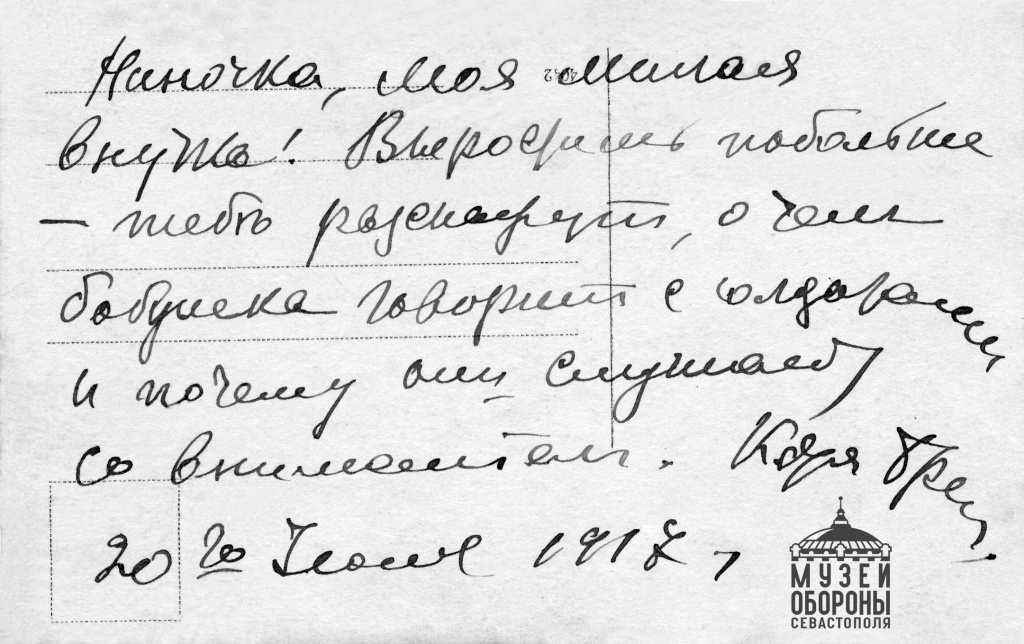 Ниночка, моя милая
внучка! побольше
— тебѣ разскажут, о чем
бабушка говорит с солдатами
и почему они слушают
со вниманием.
20го 1917 г.
МУЗЕЙ
ОБОРОНЫ
СЕВАСТОПОЛЯ